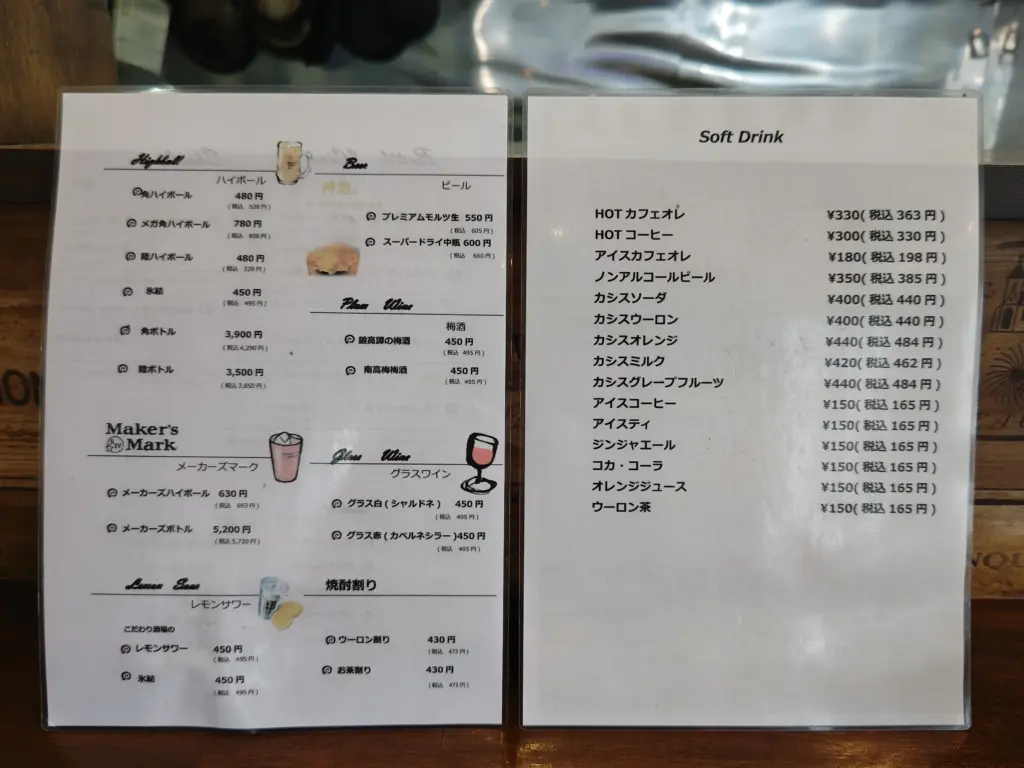 Highball
ハイボール
角ハイボール 480円
(税込 528円)
メガ角ハイボール 780円
(税込 858円)
陸ハイボール 480円
(税込 528円)
氷結 450円
(税込 495円)
角ボトル 3,900円
(税込4,290円)
陸ボトル 3,500円
(税込3,850円)
Maker's
Mark
メーカーズマーク
メーカーズハイボール 630円
(税込 693円)
メーカーズボトル 5,200円
(税込5,720円)
Lemon Sour
レモンサワー
こだわり酒場の
レモンサワー 450円
(税込 495円)
氷結 450円
(税込 495円)
Beer
ビール
神泡。
プレミアムモルツ生 550円
(税込 605円)
スーパードライ中瓶 600円
(税込 660円)
Plum Wine
梅酒
鍛高譚の梅酒 450円
(税込 495円)
南高梅梅酒 450円
(税込 495円)
Glass Wine
グラスワイン
グラス白(シャルドネ) 450円
(税込 495円)
グラス赤(カベルネシラー)450円
(税込 495円)
焼酎割り
ウーロン割り 430円
(税込 473円)
お茶割り 430円
(税込 473円)
Soft Drink
HOT カフェオレ ¥330(税込 363円)
HOT コーヒー ¥300(税込 330円)
アイスカフェオレ ¥180(税込 198円)
ノンアルコールビール ¥350(税込 385円)
カシスソーダ ¥400(税込 440円)
カシスウーロン ¥400(税込 440円)
カシスオレンジ ¥440(税込 484円)
カシスミルク ¥420(税込 462円)
カシスグレープフルーツ ¥440(税込 484円)
アイスコーヒー ¥150(税込 165円)
アイスティ ¥150(税込 165円)
ジンジャエール ¥150(税込 165円)
コカ・コーラ ¥150(税込 165円)
オレンジジュース ¥150(税込 165円)
ウーロン茶 ¥150(税込 165円)